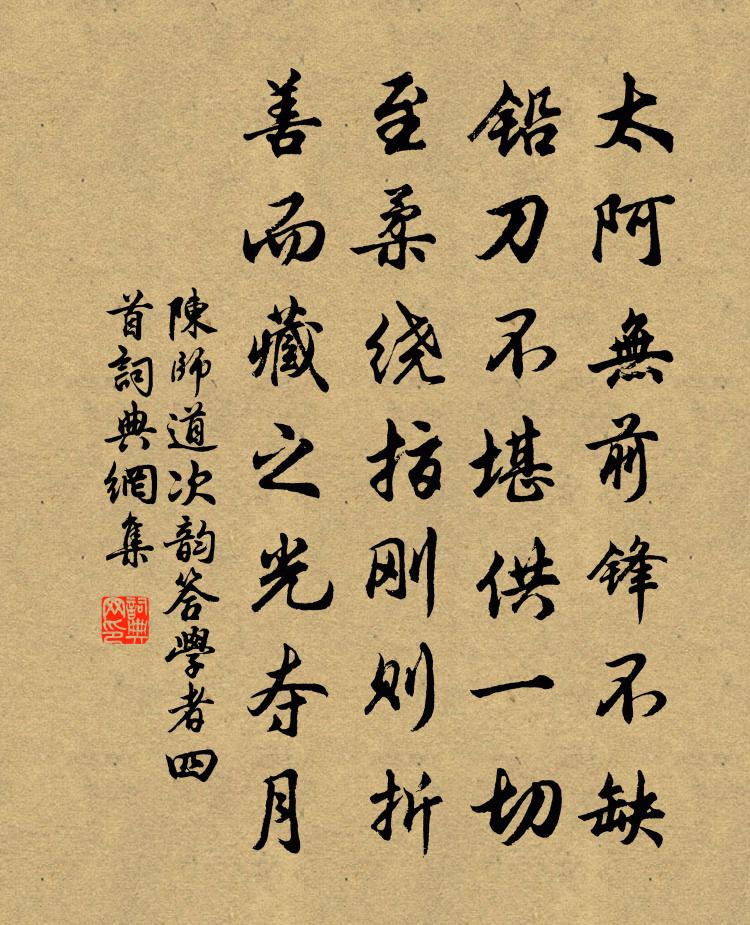 太阿無前鋒不缺
鉛刀不堪供一切
至柔绕指刚则折
善而藏之光夺月
陳師道次韵答學者四
首詞典網集
詞典
网印